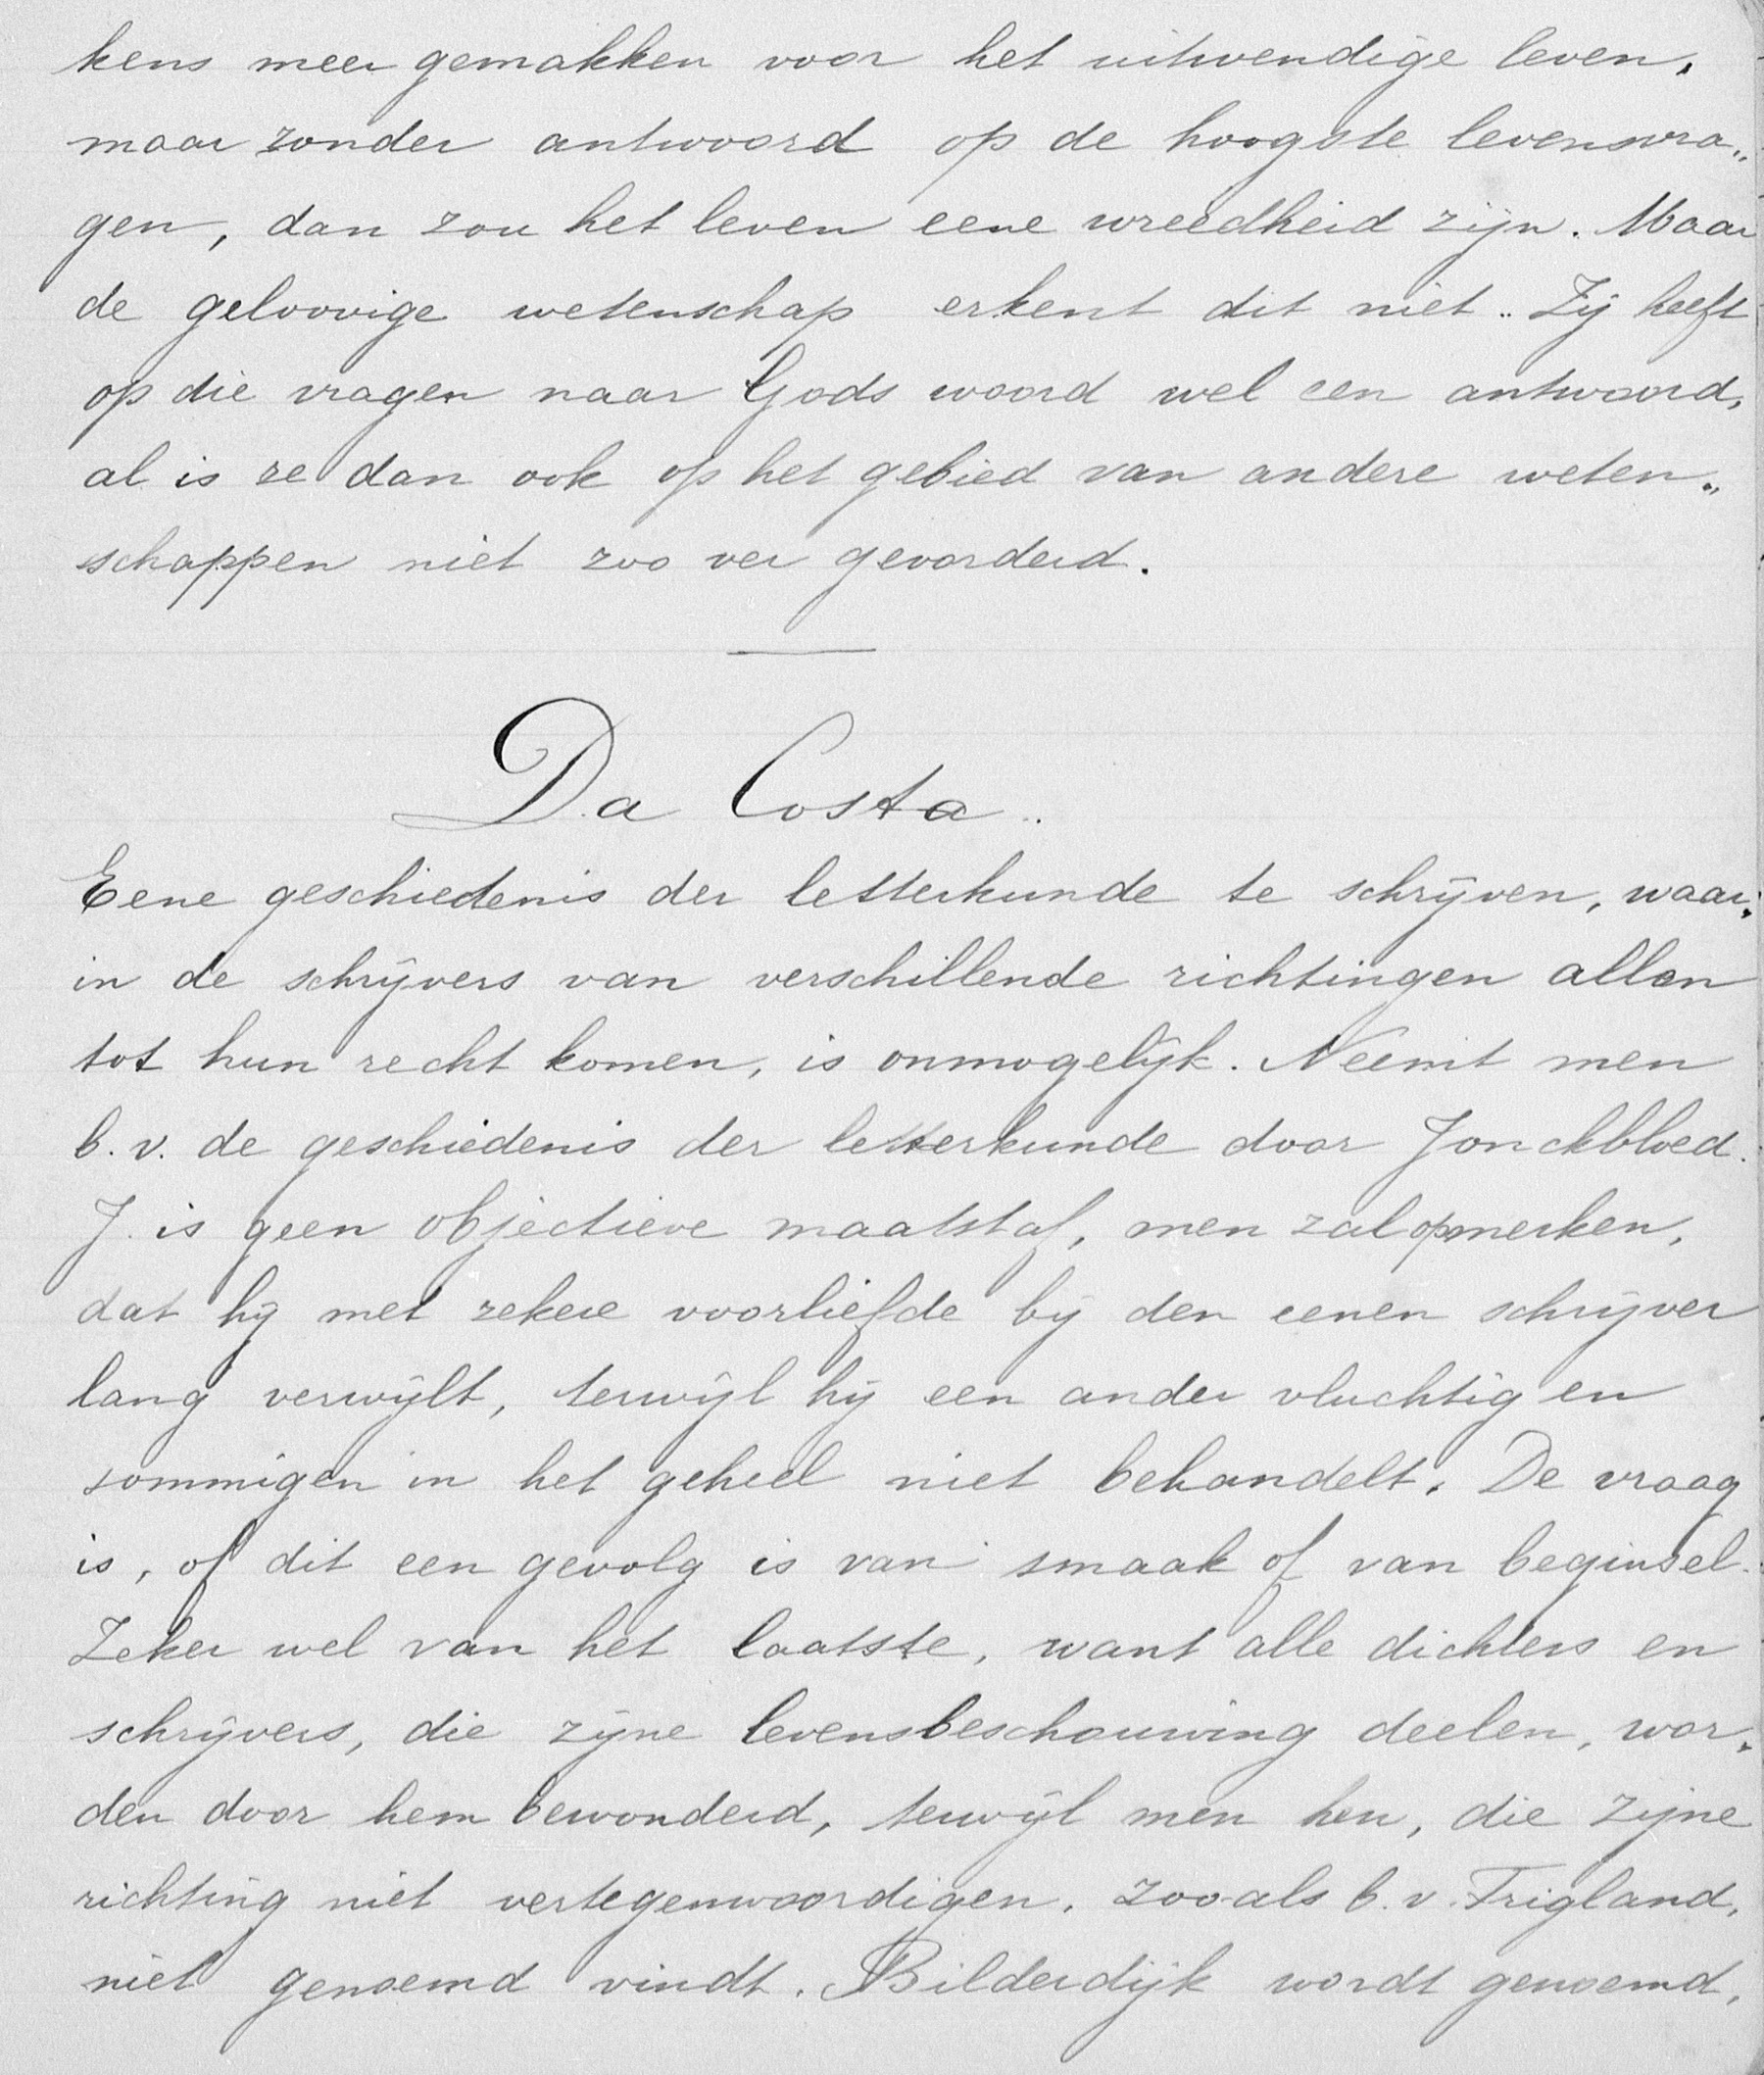 kens meer gemakken voor het uitwendige leven,
maar zonder antwoord op de hoogste levensvra„
gen, dan zou het leven eene wreedheid zijn. Maar
de geloovige wetenschap erkent dit niet.. Zij heeft
op die vragen naar Gods woord wel een antwoord,
al is ze dan ook op het gebied van andere weten„
schappen niet zoo ver gevorderd.
Da Costa..
Eene geschiedenis der letterkunde te schrijven, waar„
in de schrijvers van verschillende richtingen allen
tot hun recht komen, is onmogelijk. Neemt men
b.v. de geschiedenis der letterkunde door Jonckbloed.
J. is geen objectieve maatstaf, men zal opmerken,
dat hij met zekere voorliefde bij den eenen schrijver
lang verwijlt, terwijl hij een ander vluchtig en
sommigen in het geheel niet behandelt. De vraag
is, of dit een gevolg is van smaak of van beginsel.
Zeker wel van het laatste, want alle dichters en
schrijvers, die zijne levensbeschouwing deelen, wor„
den door hem bewonderd, terwijl men hen, die zijne
richting niet vertegenwoordigen, zooals b.v. Trigland,
niet genoemd vindt. Bilderdijk wordt genoemd,